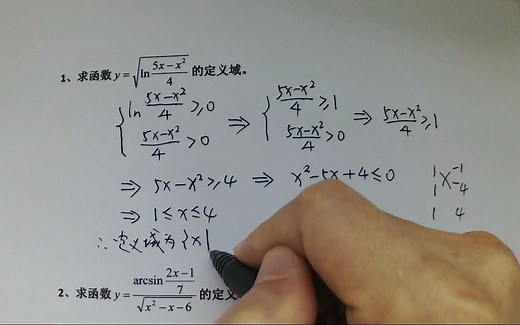 1、求函数 y = √(ln (5x-x²)/4) 的定义域。
{ ln (5x-x²)/4 ≥ 0 ⇒ { (5x-x²)/4 ≥ 1 ⇒ (5x-x²)/4 ≥ 1
(5x-x²)/4 > 0 (5x-x²)/4 > 0
⇒ 5x-x² ≥ 4 ⇒ x²-5x+4 ≤ 0 1 -1
1 -4
⇒ 1 ≤ x ≤ 4 1 4
∴ 定义域为 {x|
2、求函数 y = arcsin (2x-1)/7 / √(x²-x-6) 的定义